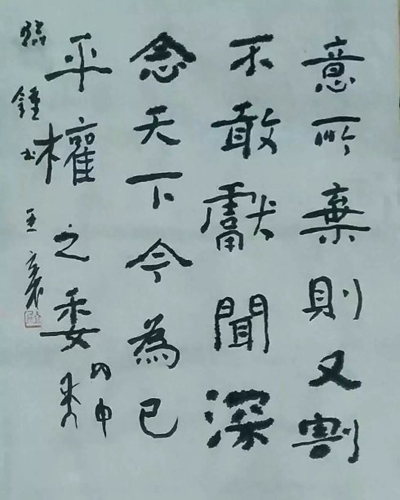 意所棄則又割
不敢獻聞深
念天下今為已
平權之委
申
鍾書王